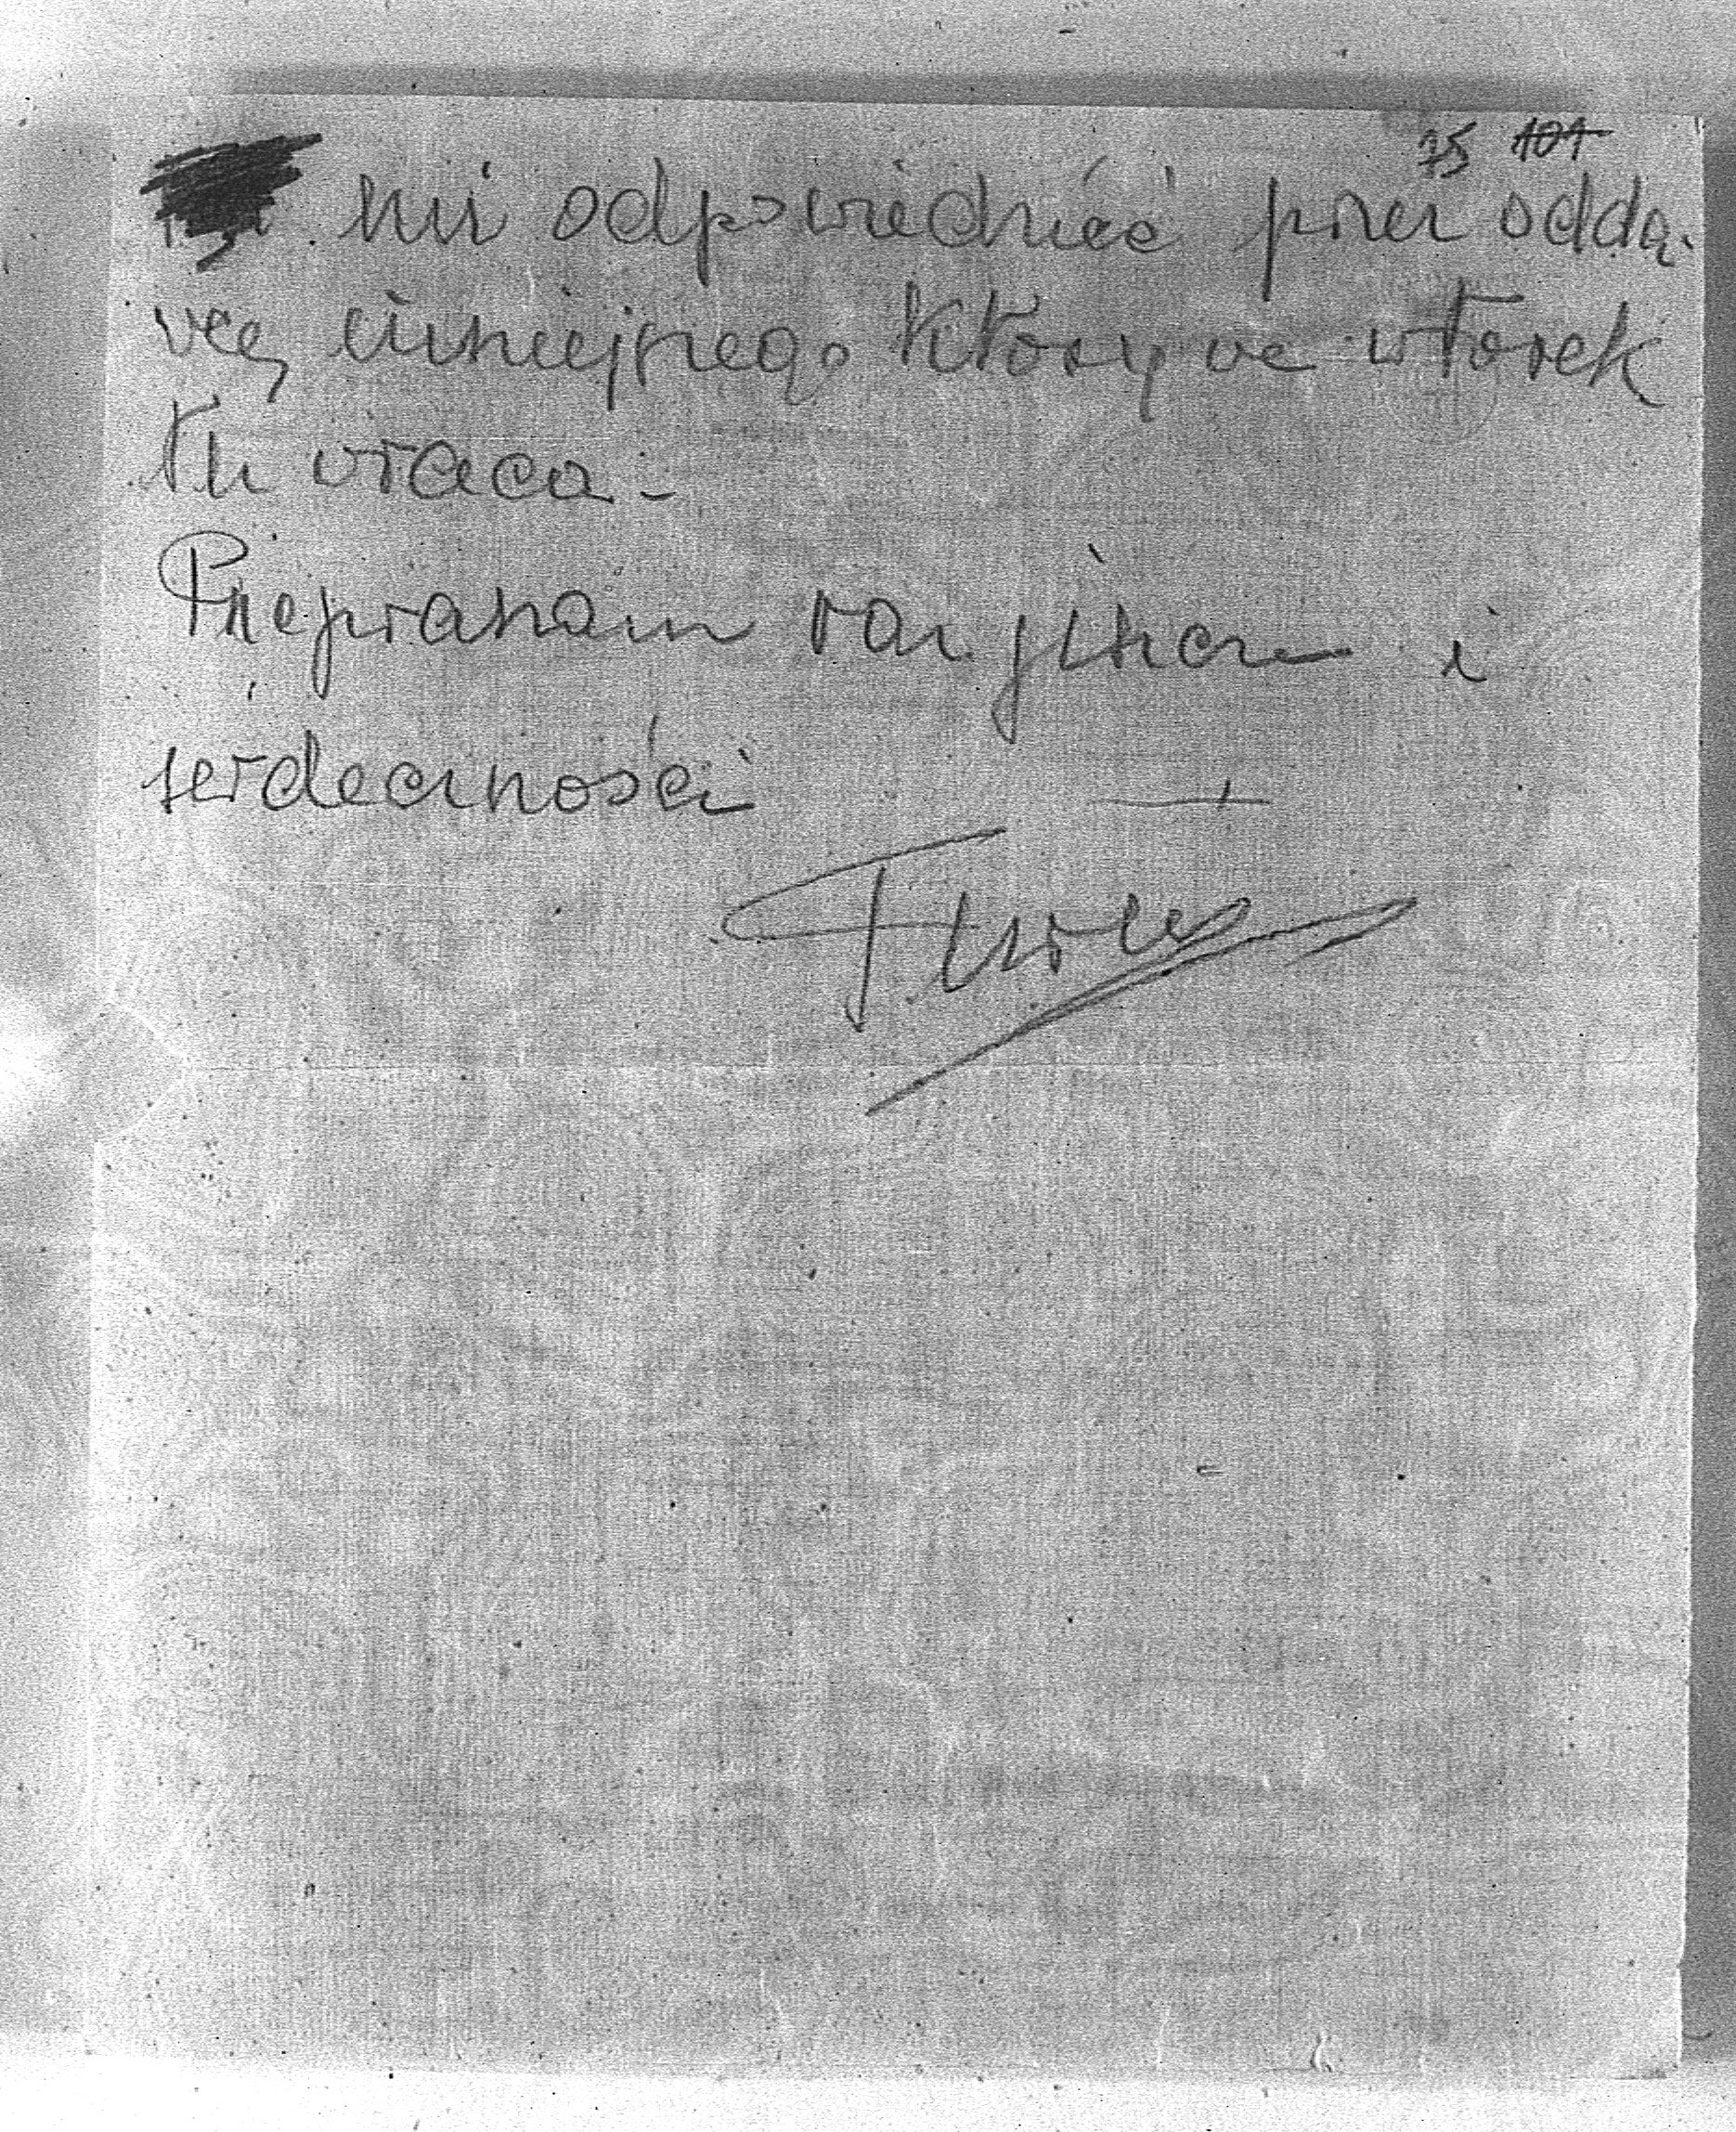 75 101
mi odpowiedzieć przez oddaw-
cę niniejszego który we wtorek
tu wraca -
Przepraszam
serdeczności